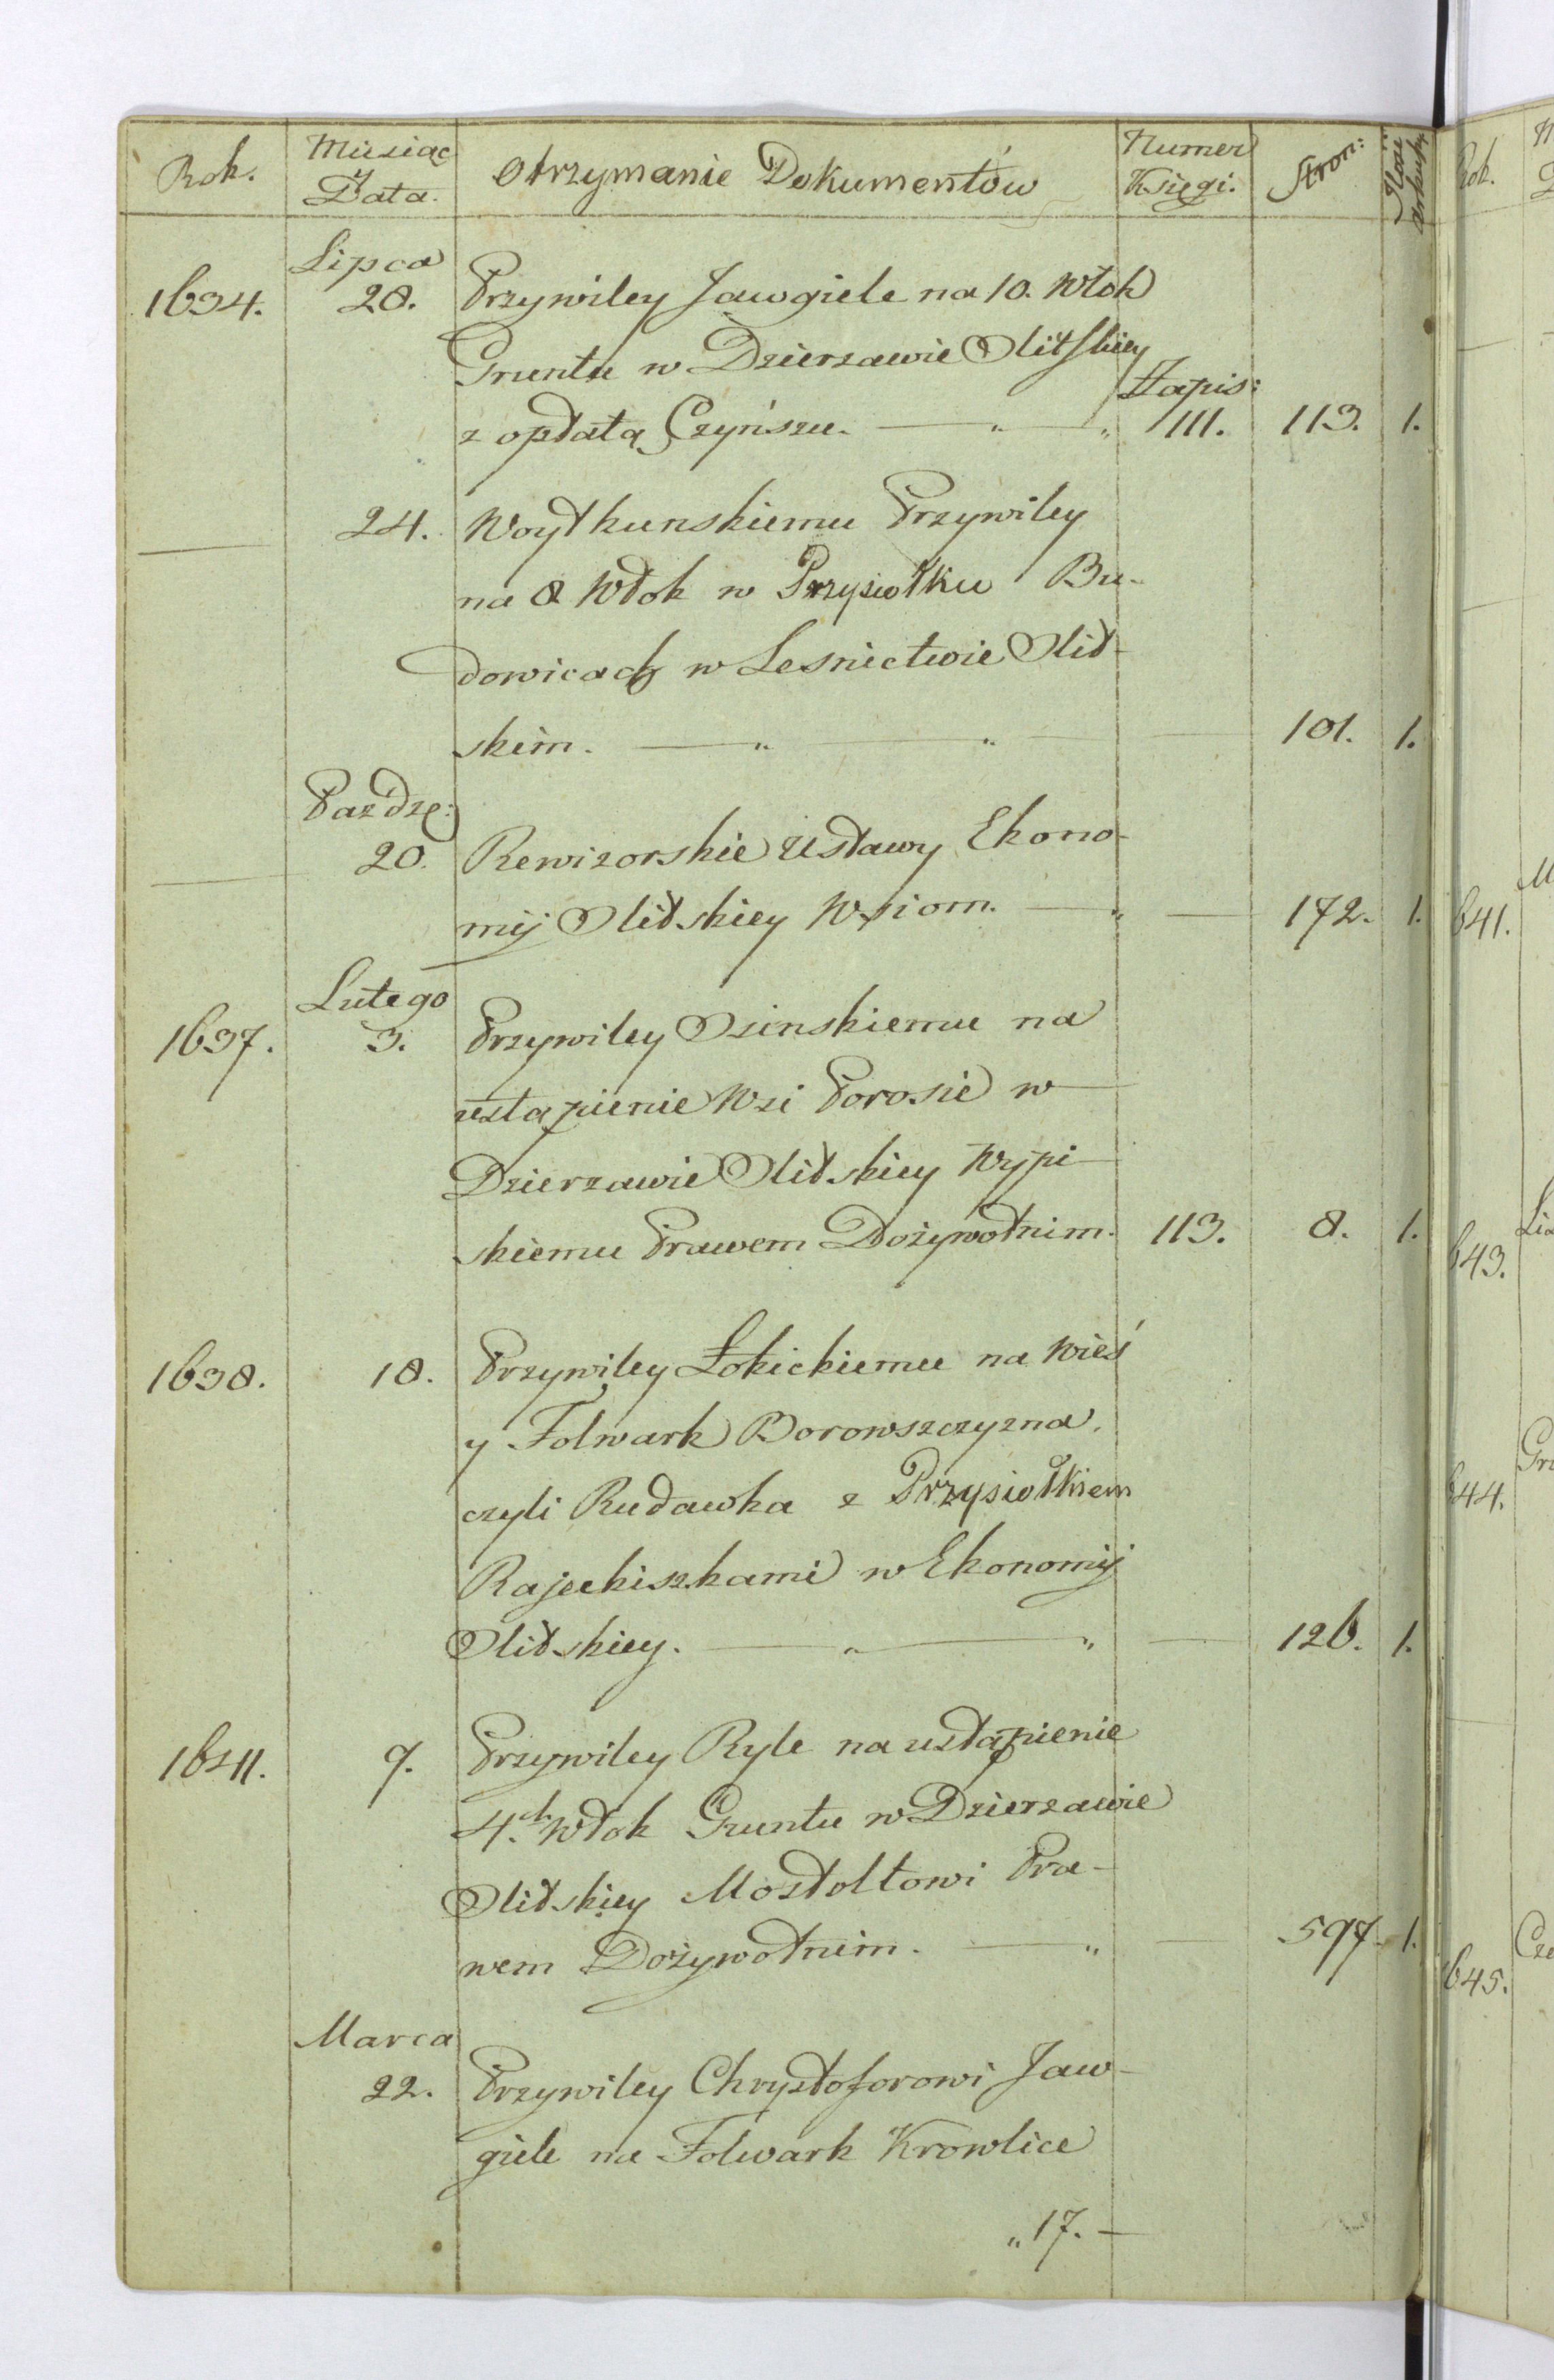 Rok. Miesiąc y Data. Otrzymanie Dokumentów Numer Księgi. Stron: Ilość arkuszy
Lipca
1634. 28. Przywiley Jawgiele na 10. Włok
Gruntu w Dzierzawie Olitskiey
Zapis:
z opłatą Czynszu. — „ — „ 111. 113. 1.
24. Woytkunskiemu Przywiley
na 8 Włok w Przysiołku Bu-
dowicach w Lesnictwie Olit-
skim. — „ — „ — 101. 1.
Pazdze:
20. Rewizorskie Ustawy Ekono-
mij Olitskiey Wsiom. — „ — 172. 1.
Lutego
1637. 3. Przywiley Osinskiemu na
ustąpienie Wsi Porosie w
Dzierzawie Olitskiey Wypi-
skiemu Prawem Dożywotnim. 113. 8. 1.
1638. 18. Przywiley Łokickiemu na Wieś
y Folwark Borowszczyzna.
czyli Rudawka z Przysiołkiem
Rajeckiszkami w Ekonomij
Olitskiey. — „ — „ — 126. 1.
1641. 9. Przywiley Ryle na ustąpienie
4.ch Włok Gruntu w Dzierzawie
Olitskiey Mostoltowi Pra-
wem Dożywotnim. — „ — 597. 1.
Marca
22. Przywiley Chrystoforowi Jaw-
giele na Folwark Krowlice
„ 17. —
Rok.
641.
643.
644.
645.